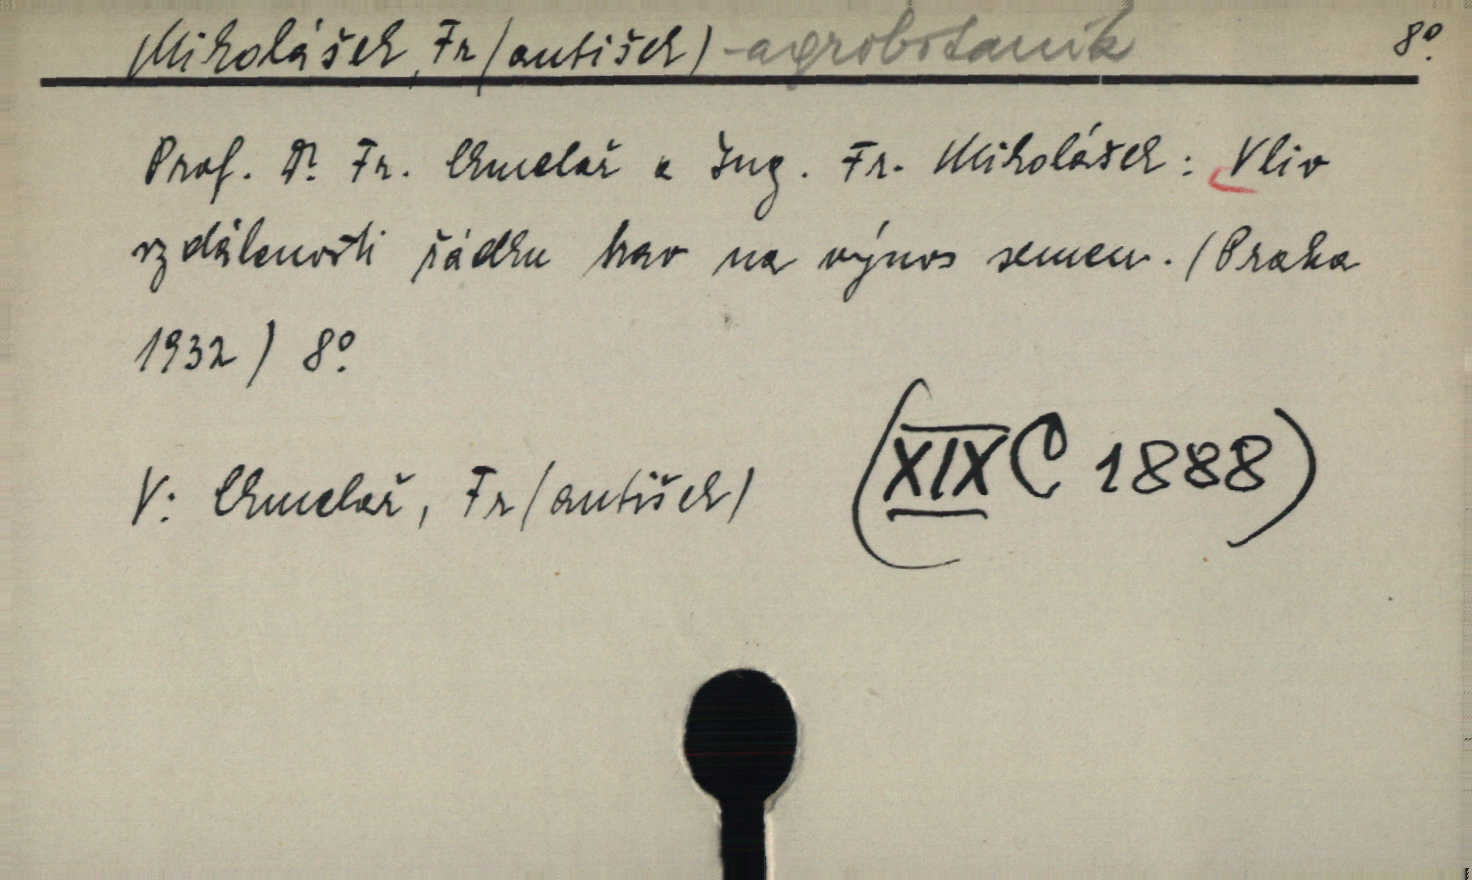 Mikolášek, Fr/antišek) - agrobotanik 8°
Prof. Dr. Fr. Chmelař a Ing. Fr. Mikolášek: Vliv
vzdálenosti řádku trav na výnos semen. (Praha
1932) 8°.
V: Chmelař, Fr/antišek) (XIX C 1888)